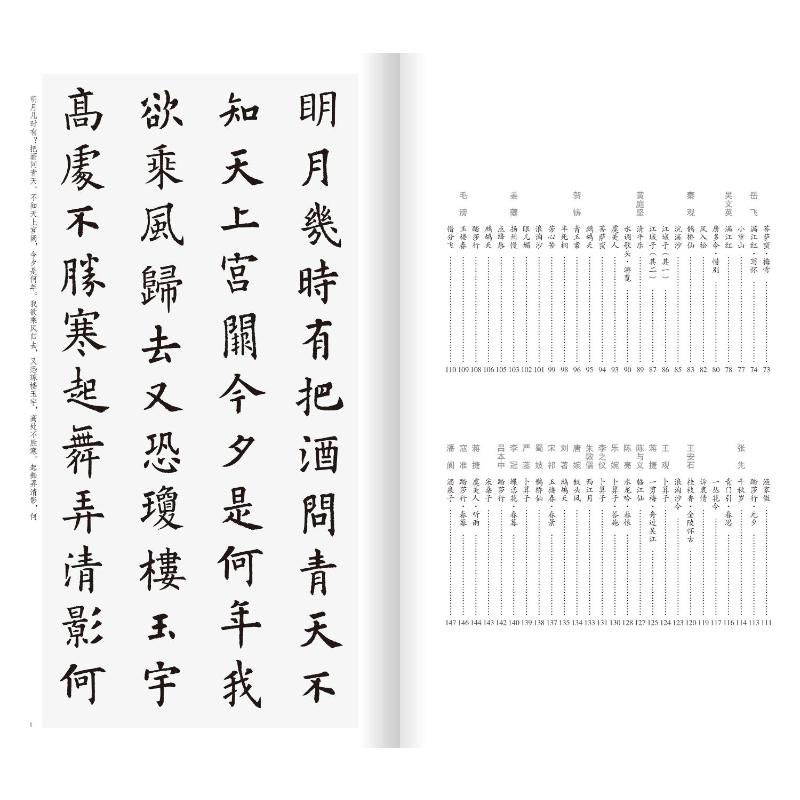 明月幾時有把酒問青天不
知天上宮闕今夕是何年我
欲乘風歸去又恐瓊樓玉宇
高處不勝寒起舞弄清影何
明月几时有?把酒问青天。不知天上宫阙,今夕是何年。我欲乘风归去,又恐琼楼玉宇,高处不胜寒。起舞弄清影,何
1
菩萨蛮·梅雪 73
岳飞 满江红·写怀 74
小重山 77
吴文英 满江红 78
唐多令·惜别 80
风入松 82
秦观 鹊桥仙 83
浣溪沙 85
江城子(其一) 86
江城子(其二) 87
黄庭坚 清平乐 89
水调歌头·游览 90
虞美人 93
菩萨蛮 94
鹧鸪天 95
贺铸 青玉案 96
半死桐 98
芳心苦 99
浪淘沙 101
眼儿媚 102
姜夔 扬州慢 103
点绛唇 105
鹧鸪天 106
踏莎行 108
毛滂 玉楼春 109
惜分飞 110
渔家傲 111
踏莎行·元夕 113
张先 千秋岁 114
青门引·春思 116
一丛花令 117
诉衷情 119
王安石 桂枝香·金陵怀古 120
浪淘沙令 123
王观 卜算子 124
蒋捷 一剪梅·舟过吴江 125
陈与义 临江仙 127
陈亮 水龙吟·春恨 128
乐婉 卜算子·答施 130
李之仪 卜算子 131
朱敦儒 西江月 133
唐婉 钗头凤 134
刘著 鹧鸪天 135
宋祁 玉楼春·春景 137
蜀妓 鹊桥仙 138
严蕊 卜算子 139
李冠 蝶恋花·春暮 140
吕本中 踏莎行 142
采桑子 143
蒋捷 虞美人·听雨 144
寇准 踏莎行·春暮 146
潘阆 酒泉子 147